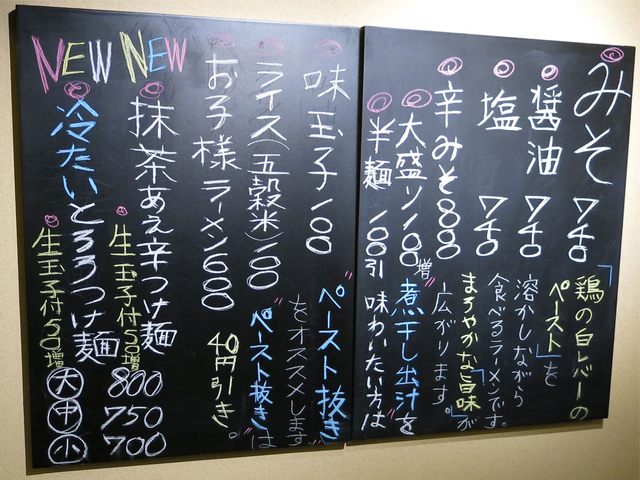 みそ 750
醤油 750
塩 750
辛みそ 800
大盛り 100増
半麺 100引
「鶏の白レバーの
ペースト」を
溶かしながら
食べるラーメンです。
まろやかな「旨味」が
広がります。
煮干し出汁を
味わいたい方は
味玉子 100
ライス(五穀米) 100
お子様ラーメン 600
"ペースト抜き"
をオススメします
"ペースト抜き"は
40円引き。
NEW
抹茶あえ辛つけ麺
生玉子付50増
NEW
冷たいとろろつけ麺
生玉子付50増
大 800
中 750
小 700